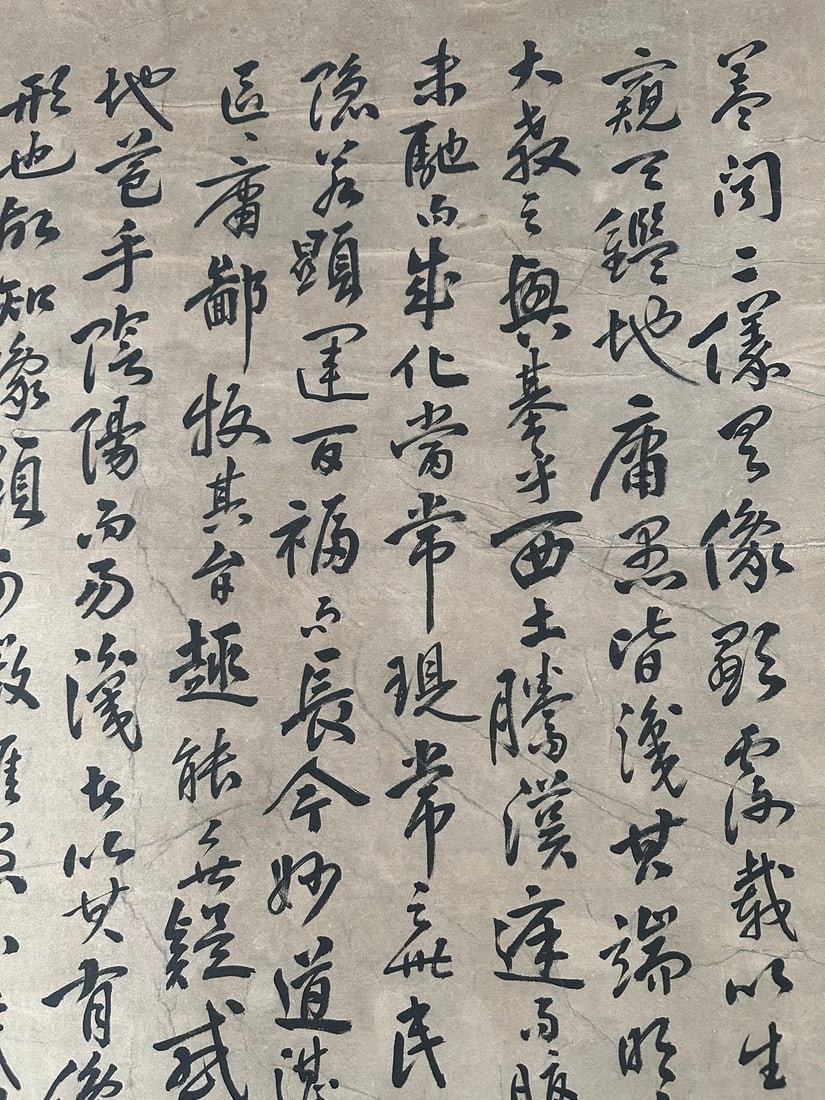 蓋聞二儀有像顯覆載以生
窺天鑑地庸愚皆識其端明
大教之興基乎西土騰漢庭而皎
未馳而成化當常現常之世民
隱若顯運百福而長今妙道凝
區〻庸鄙投其旨趣能無疑惑
地苞乎陰陽而易識者以其有像
形也故知像顯可徵雖愚不惑